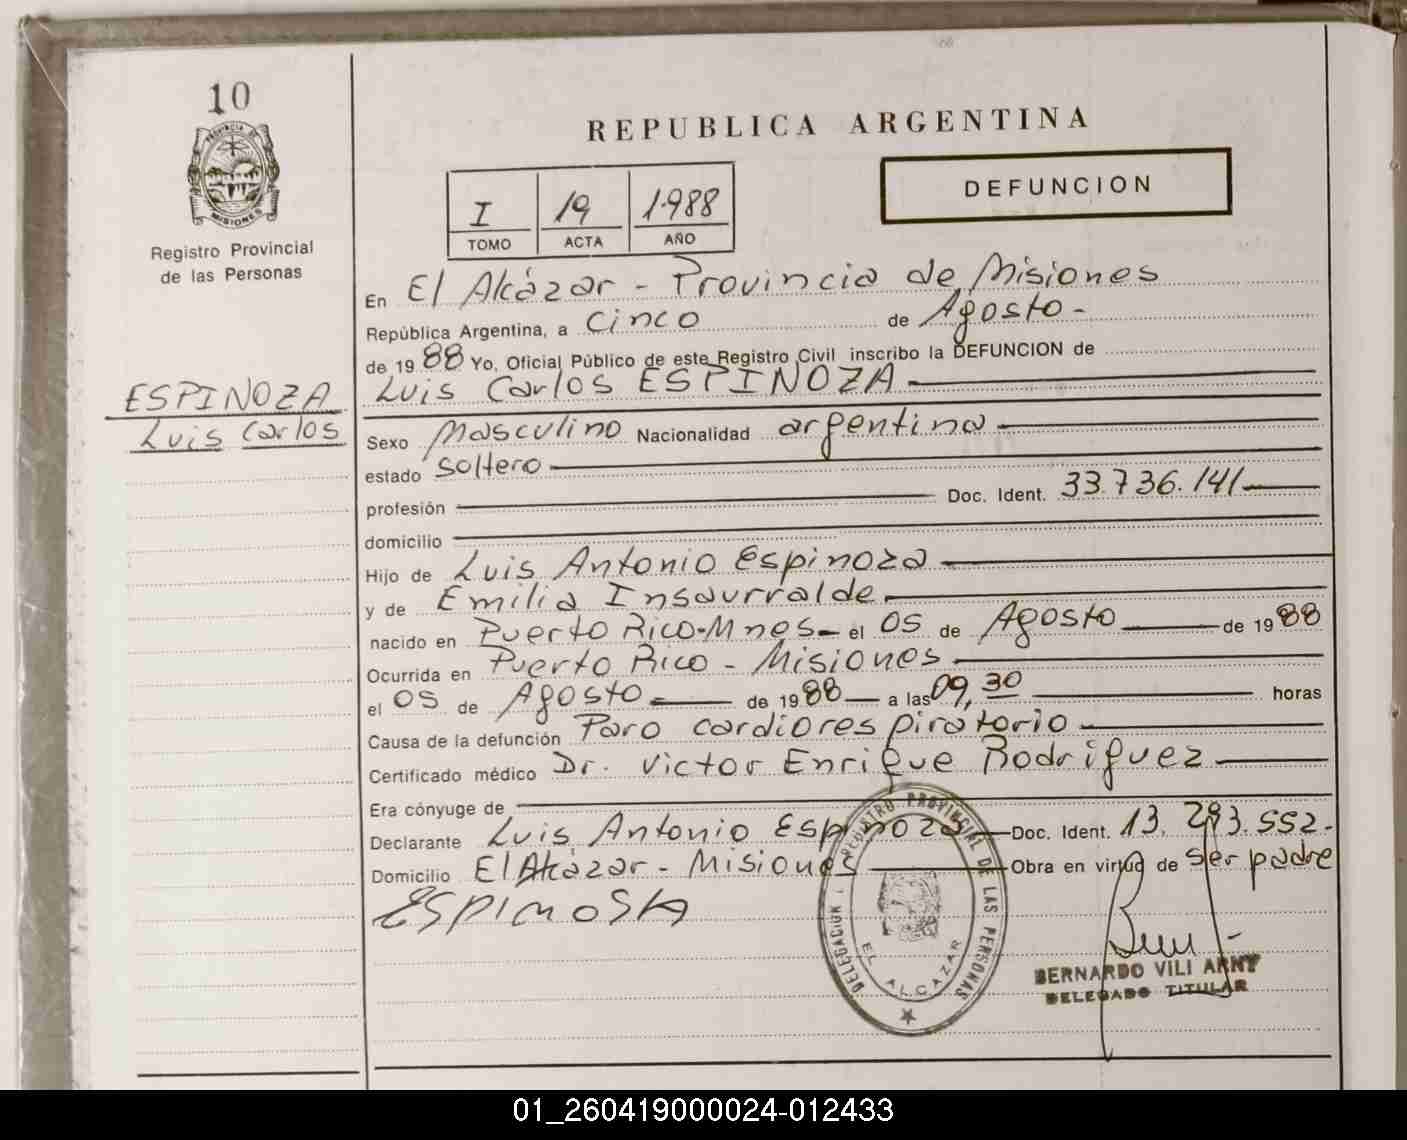 10
PROVINCIA DE
MISIONES
Registro Provincial
de las Personas
ESPINOZA
Luis Carlos
REPUBLICA ARGENTINA
I 19 1.988
TOMO ACTA AÑO
DEFUNCION
En El Alcázar - Provincia de Misiones
República Argentina, a cinco de Agosto -
de 1988 Yo, Oficial Público de este Registro Civil inscribo la DEFUNCION de
Luis Carlos ESPINOZA
Sexo Masculino Nacionalidad argentina
estado soltero
profesión Doc. Ident. 33.736.141
domicilio
Hijo de Luis Antonio Espinoza
y de Emilia Insaurralde
nacido en Puerto Rico-Mnes- el 05 de Agosto de 1988
Ocurrida en Puerto Rico - Misiones
el 05 de Agosto de 1988 a las 09,30 horas
Causa de la defunción Paro cardiorespiratorio
Certificado médico Dr. Victor Enrique Rodríguez
Era cónyuge de
Declarante Luis Antonio Espinoza Doc. Ident. 13.293.552-
Domicilio El Alcázar - Misiones Obra en virtud de ser padre
ESPINOSA
DELEGACION REGISTRO PROVINCIAL DE LAS PERSONAS
EL ALCAZAR
BERNARDO VILI ARNT
DELEGADO TITULAR
01_260419000024-012433